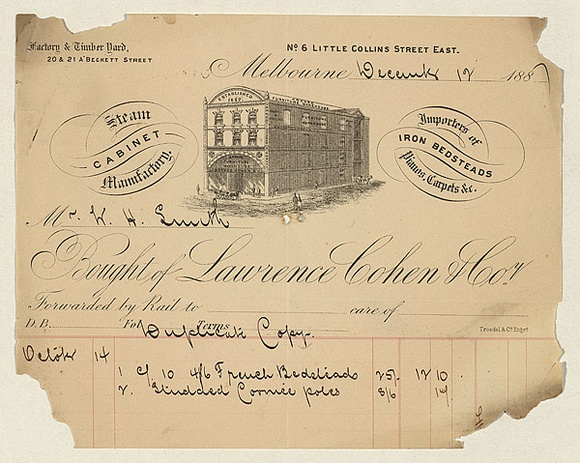 Factory & Timber Yard,
20 & 21 A'Beckett Street
No 6 Little Collins Street East.
Melbourne December 12 188
ESTABLISHED
Steam
CABINET
Manufactory.
Importers of
IRON BEDSTEADS
Pianos, Carpets &c.
Mr. W. H. Smith
Bought of Lawrence Cohen & Coy
Forwarded by Rail to care of
D.B. Fol Terms
Duplicate Copy.
Troedel & Co Engrs
Octobr 14
1 c/ 10 4/6 French Bedsteads 25/- 12 10
2. Studded Cornice poles 8/6